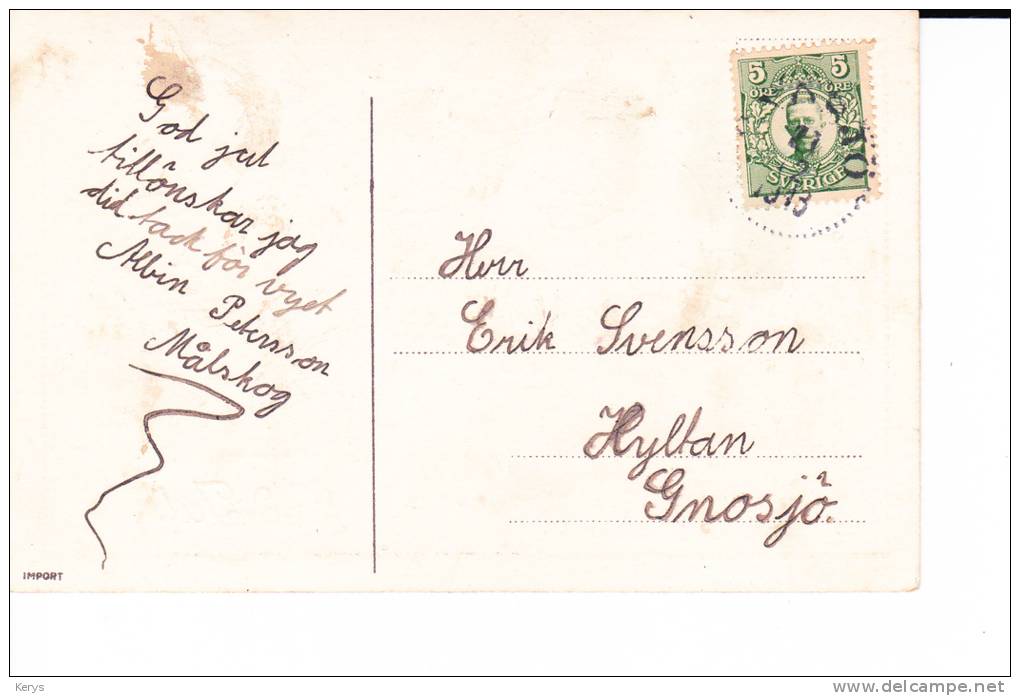 God jul
tillönskar jag
did tack för vyet
Albin Petersson
Målskog
IMPORT
5 5
ÖRE ÖRE
SVERIGE
1913
Herr
Erik Svensson
Hyltan
Gnosjö.
Kerys
delcampe.net